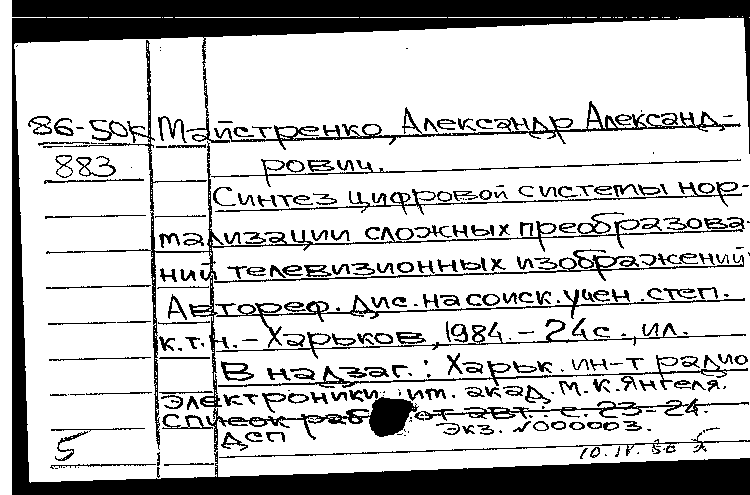 86-50к Майстренко, Александр Александ-
883 рович.
Синтез цифровой системы нор-
мализации сложных преобразова-
ний телевизионных изображений
Автореф. дис. на соиск. учен. степ.
к.т.н. - Харьков, 1984. - 24с., ил.
В надзаг.: Харьк. ин-т радио
электроники им. акад. М.К. Янгеля.
Список раб от авт.: с. 23-24.
5 ДСП экз. №000003.
10.IV.86